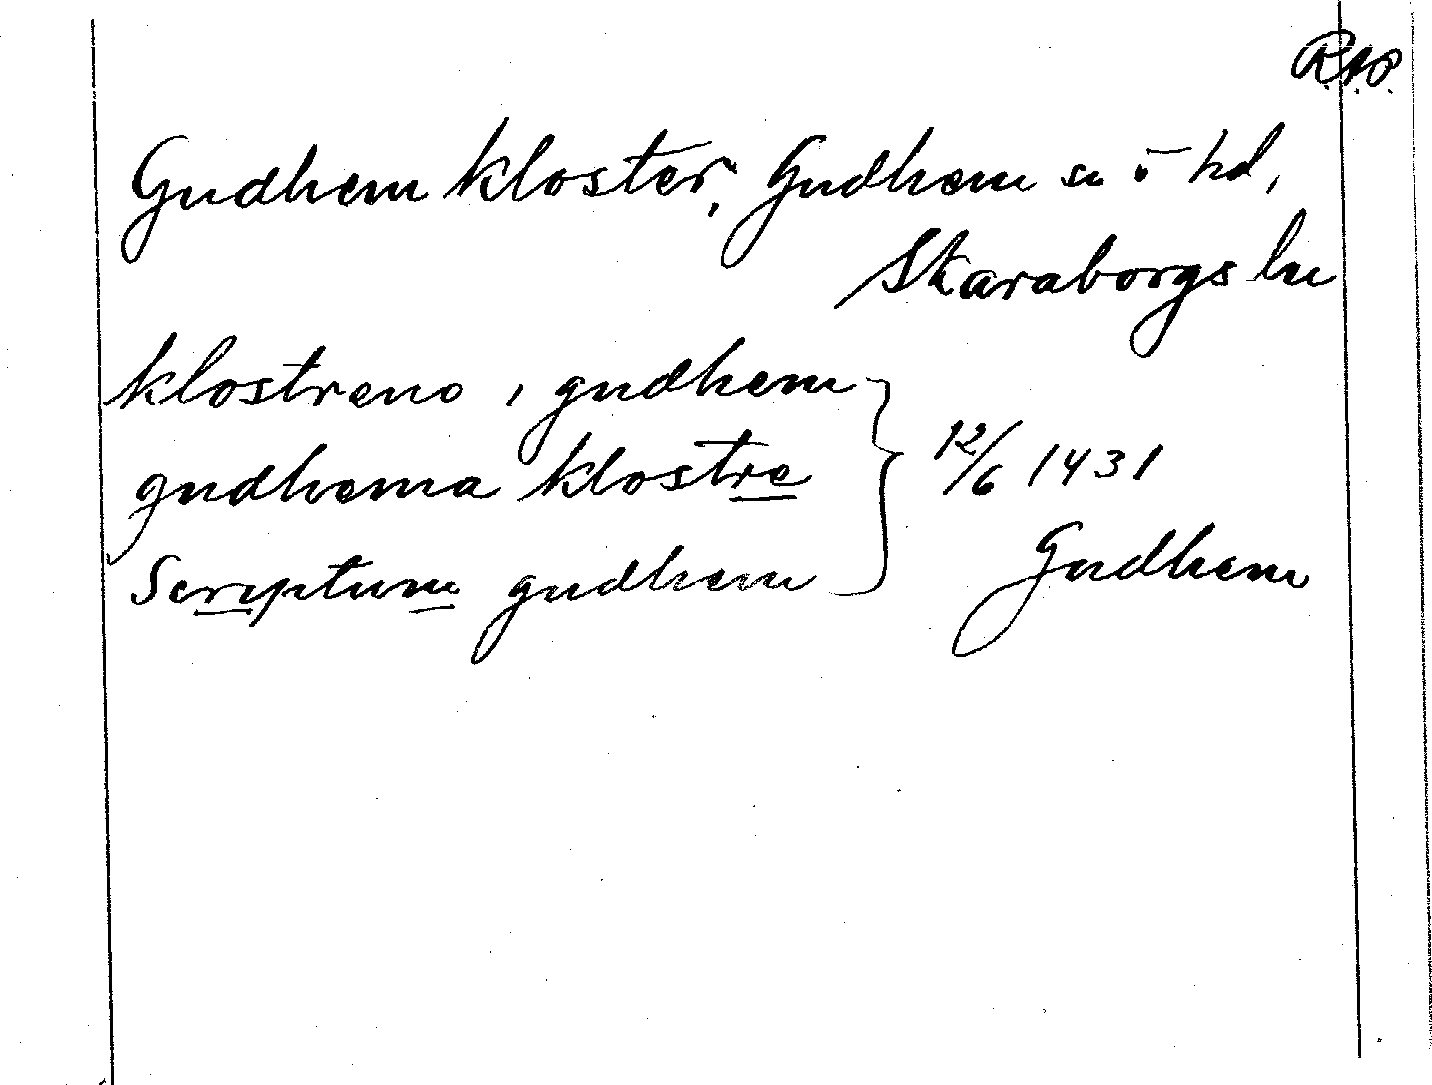 R.A.P.
Gudhem kloster, Gudhem sn o hd,
Skaraborgs län
klostreno i gudhem
gudhema klostre
Scriptum gudhem
12/6 1431
Gudhem